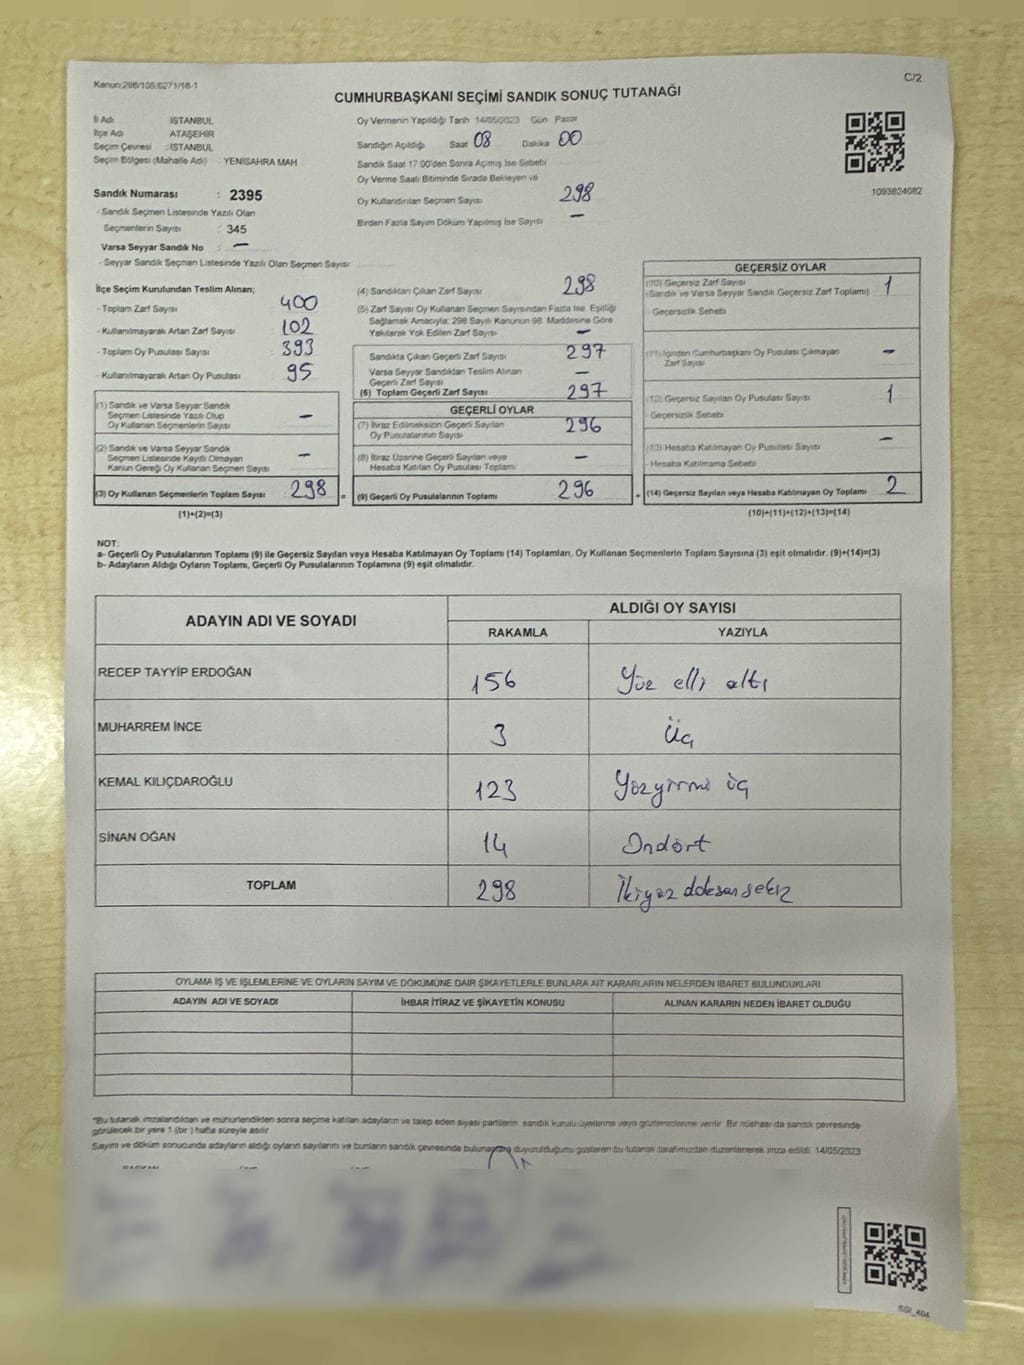 Kanun:298/105;6271/18-1
C/2
CUMHURBAŞKANI SEÇİMİ SANDIK SONUÇ TUTANAĞI
İl Adı İSTANBUL
İlçe Adı ATAŞEHİR
Seçim Çevresi :İSTANBUL
Seçim Bölgesi (Mahalle Adı) YENİSAHRA MAH
Sandık Numarası : 2395
- Sandık Seçmen Listesinde Yazılı Olan
Seçmenlerin Sayısı : 345
Varsa Seyyar Sandık No : —
- Seyyar Sandık Seçmen Listesinde Yazılı Olan Seçmen Sayısı
Oy Vermenin Yapıldığı Tarih 14/05/2023 Gün Pazar
Sandığın Açıldığı Saat 08 Dakika 00
Sandık Saat 17.00'den Sonra Açılmış İse Sebebi
Oy Verme Saati Bitiminde Sırada Bekleyen ve
Oy Kullandırılan Seçmen Sayısı 298
Birden Fazla Sayım Döküm Yapılmış İse Sayısı —
1093624082
İlçe Seçim Kurulundan Teslim Alınan;
- Toplam Zarf Sayısı 400
- Kullanılmayarak Artan Zarf Sayısı 102
- Toplam Oy Pusulası Sayısı 393
- Kullanılmayarak Artan Oy Pusulası 95
(1) Sandık ve Varsa Seyyar Sandık
Seçmen Listesinde Yazılı Olup
Oy Kullanan Seçmenlerin Sayısı —
(2) Sandık ve Varsa Seyyar Sandık
Seçmen Listesinde Kayıtlı Olmayan
Kanun Gereği Oy Kullanan Seçmen Sayısı —
(3) Oy Kullanan Seçmenlerin Toplam Sayısı 298 =
(1)+(2)=(3)
(4) Sandıktan Çıkan Zarf Sayısı 298
(5) Zarf Sayısı Oy Kullanan Seçmen Sayısından Fazla İse, Eşitliği
Sağlamak Amacıyla; 298 Sayılı Kanunun 98. Maddesine Göre
Yakılarak Yok Edilen Zarf Sayısı —
Sandıkta Çıkan Geçerli Zarf Sayısı 297
Varsa Seyyar Sandıktan Teslim Alınan
Geçerli Zarf Sayısı —
(6) Toplam Geçerli Zarf Sayısı 297
GEÇERLİ OYLAR
(7) İtiraz Edilmeksizin Geçerli Sayılan
Oy Pusulalarının Sayısı 296
(8) İtiraz Üzerine Geçerli Sayılan veya
Hesaba Katılan Oy Pusulası Toplamı —
(9) Geçerli Oy Pusulalarının Toplamı 296 +
GEÇERSİZ OYLAR
(10) Geçersiz Zarf Sayısı
(Sandık ve Varsa Seyyar Sandık Geçersiz Zarf Toplamı) 1
- Geçersizlik Sebebi
(11) İçinden Cumhurbaşkanı Oy Pusulası Çıkmayan
Zarf Sayısı —
(12) Geçersiz Sayılan Oy Pusulası Sayısı 1
- Geçersizlik Sebebi
(13) Hesaba Katılmayan Oy Pusulası Sayısı —
- Hesaba Katılmama Sebebi
(14) Geçersiz Sayılan veya Hesaba Katılmayan Oy Toplamı 2
(10)+(11)+(12)+(13)=(14)
NOT:
a- Geçerli Oy Pusulalarının Toplamı (9) ile Geçersiz Sayılan veya Hesaba Katılmayan Oy Toplamı (14) Toplamları, Oy Kullanan Seçmenlerin Toplam Sayısına (3) eşit olmalıdır. (9)+(14)=(3)
b- Adayların Aldığı Oyların Toplamı, Geçerli Oy Pusulalarının Toplamına (9) eşit olmalıdır.
ADAYIN ADI VE SOYADI
ALDIĞI OY SAYISI
RAKAMLA YAZIYLA
RECEP TAYYİP ERDOĞAN 156 Yüz elli altı
MUHARREM İNCE 3 Üç
KEMAL KILIÇDAROĞLU 123 Yüzyirmi üç
SİNAN OĞAN 14 Ondört
TOPLAM 298 İkiyüz doksansekiz
OYLAMA İŞ VE İŞLEMLERİNE VE OYLARIN SAYIM VE DÖKÜMÜNE DAİR ŞİKAYETLERLE BUNLARA AİT KARARLARIN NELERDEN İBARET BULUNDUKLARI
ADAYIN ADI VE SOYADI İHBAR İTİRAZ VE ŞİKAYETİN KONUSU ALINAN KARARIN NEDEN İBARET OLDUĞU
*Bu tutanak imzalandıktan ve mühürlendikten sonra seçime katılan adayların ve talep eden siyasi partilerin sandık kurulu üyelerine veya gözlemcilerine verilir. Bir nüshası da sandık çevresinde
görülecek bir yere 1 (bir) hafta süreyle asılır.
Sayım ve döküm sonucunda adayların aldığı oyların sayılarını ve bunların sandık çevresinde bulunanlara duyurulduğunu gösteren bu tutanak tarafımızdan düzenlenerek imza edildi. 14/05/2023
SGI_404